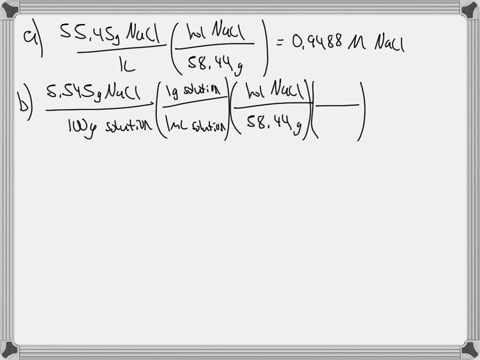 a) 55.45g NaCl / 1L (mol NaCl / 58.44 g) = 0.9488 M NaCl
b) 5.545g NaCl / 100g solution (1g solution / 1mL solution) (mol NaCl / 58.44 g) ( / )